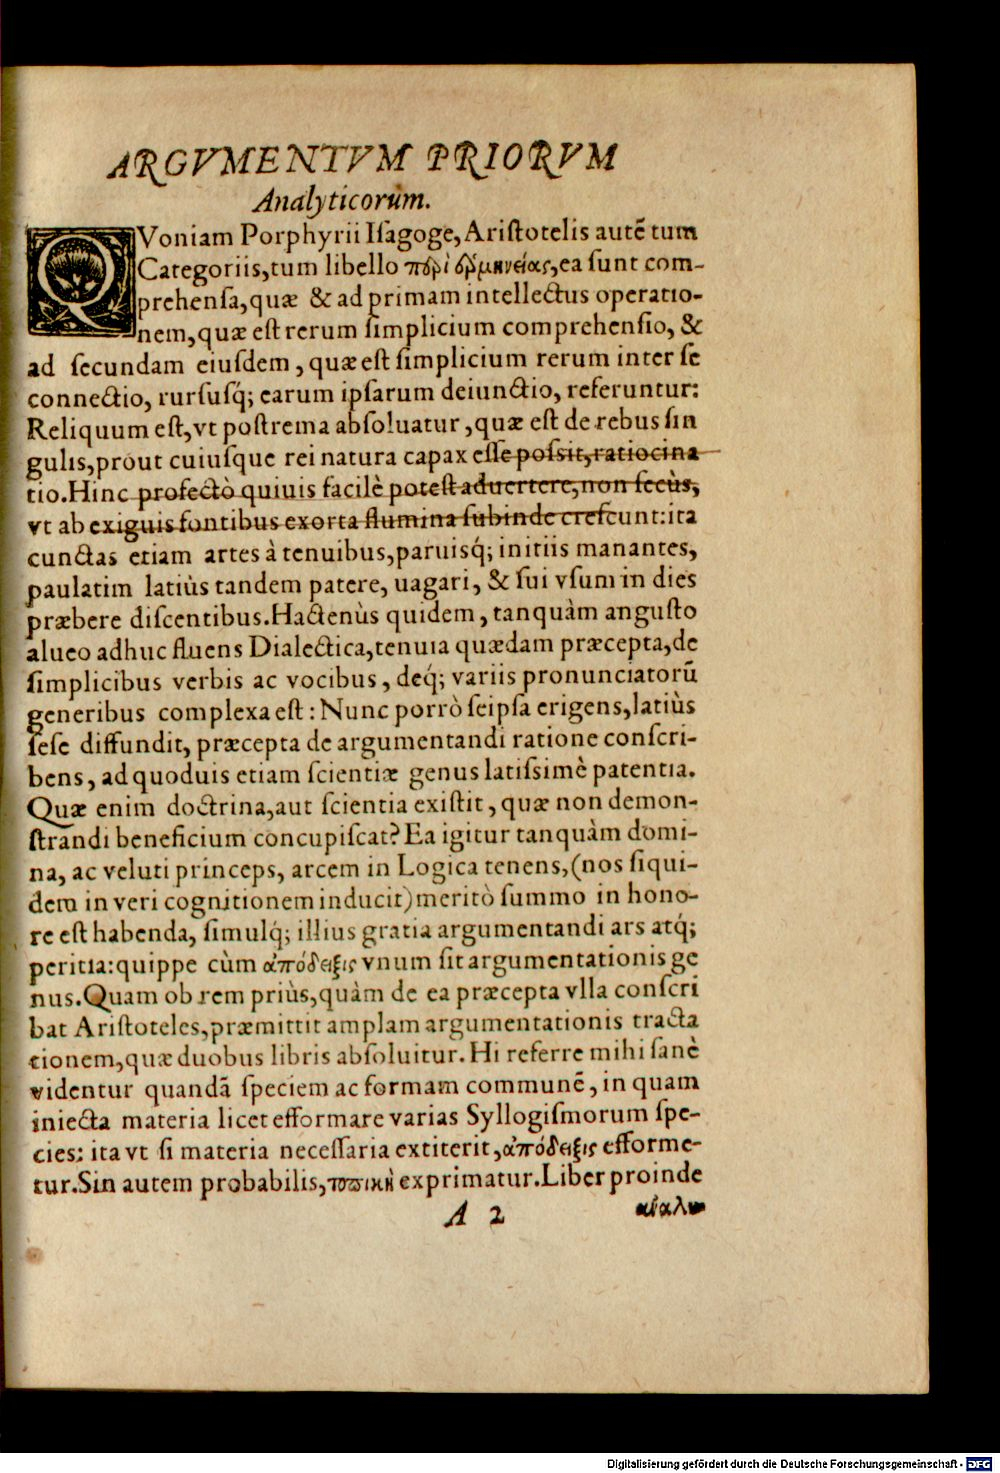 ARGVMENTVM PRIORVM
Analyticorùm.
QVoniam Porphyrii Iſagoge, Ariſtotelis autē tum
Categoriis, tum libello περὶ ἑρμηνείας, ea ſunt com-
prehenſa, quæ & ad primam intellectus operatio-
nem, quæ eſt rerum ſimplicium comprehenſio, &
ad ſecundam eiuſdem, quæ eſt ſimplicium rerum inter ſe
connectio, rurſuſq́; earum ipſarum deiunctio, referuntur:
Reliquum eſt, vt poſtrema abſoluatur, quæ eſt de rebus ſin
gulis, prout cuiuſque rei natura capax eſſe poſsit, ratiocina
tio. Hinc profectò quiuis facilè poteſt aduertere, non ſecùs,
vt ab exiguis fontibus exorta flumina ſubinde creſcunt: ita
cunctas etiam artes à tenuibus, paruisq́; initiis manantes,
paulatim latiùs tandem patere, uagari, & ſui vſum in dies
præbere diſcentibus. Hactenùs quidem, tanquàm anguſto
alueo adhuc fluens Dialectica, tenuia quædam præcepta, de
ſimplicibus verbis ac vocibus, deq́; variis pronunciatorū
generibus complexa eſt: Nunc porrò ſeipſa erigens, latiùs
ſeſe diffundit, præcepta de argumentandi ratione conſcri-
bens, ad quoduis etiam ſcientiæ genus latiſsimè patentia.
Quæ enim doctrina, aut ſcientia exiſtit, quæ non demon-
ſtrandi beneficium concupiſcat? Ea igitur tanquàm domi-
na, ac veluti princeps, arcem in Logica tenens, (nos ſiqui-
dem in veri cognitionem inducit) meritò ſummo in hono-
re eſt habenda, ſimulq́; illius gratia argumentandi ars atq́;
peritia: quippe cùm ἀπόδειξις vnum ſit argumentationis ge
nus. Quam ob rem priùs, quàm de ea præcepta vlla conſcri
bat Ariſtoteles, præmittit amplam argumentationis tracta
tionem, quæ duobus libris abſoluitur. Hi referre mihi ſanè
videntur quandā ſpeciem ac formam communē, in quam
iniecta materia licet efformare varias Syllogiſmorum ſpe-
cies: ita vt ſi materia neceſſaria extiterit, ἀπόδειξις efforme-
tur. Sin autem probabilis, τοπικὴ exprimatur. Liber proinde
A 2 ἀναλυ
Digitalisierung gefördert durch die Deutsche Forschungsgemeinschaft - DFG